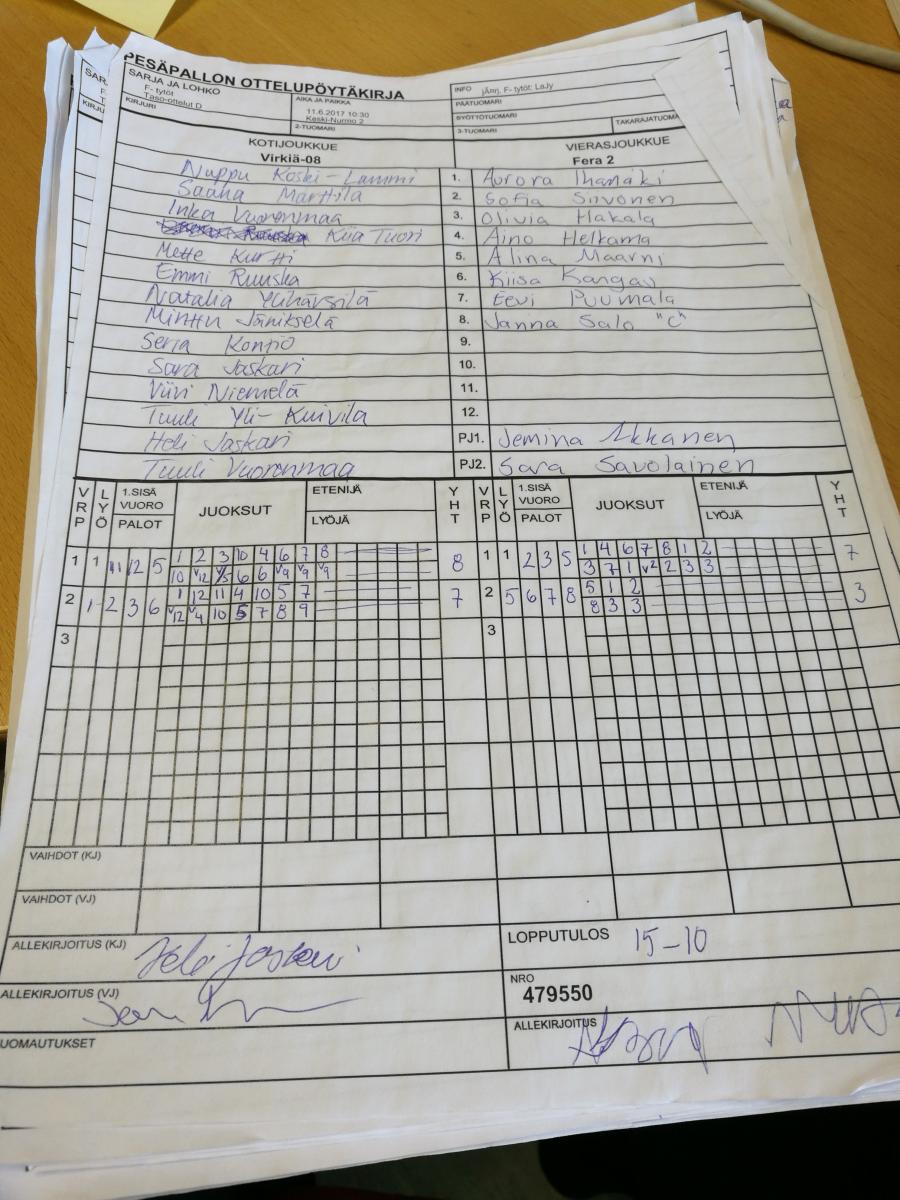 PESÄPALLON OTTELUPÖYTÄKIRJA
SARJA JA LOHKO
F- tytöt
Taso-ottelut D
AIKA JA PAIKKA
11.6.2017 10:30
Keski-Nurmo 2
INFO järj. F- tytöt: LaJy
PÄÄTUOMARI
KIRJURI
2-TUOMARI
SYÖTTÖTUOMARI
3-TUOMARI
TAKARAJATUOMA
KOTIJOUKKUE
Virkiä-08
VIERASJOUKKUE
Fera 2
Nuppu Koski-Lammi 1. Aurora Ihamäki
Saana Marttila 2. Sofia Siivonen
Inka Vuorenmaa 3. Olivia Hakala
Kiia Tuori 4. Aino Helkama
Mette Kurtti 5. Alina Maarni
Emmi Ruuska 6. Kiisa Kangas
Natalia Ylihärsilä 7. Eevi Puumala
Minttu Jänikselä 8. Janna Salo "C"
Serja Kontio 9.
Sara Jaskari 10.
Viivi Niemelä 11.
Tuuli Yli-Kuivila 12.
Heli Jaskari PJ1. Jemina Akkanen
Tuuli Vuorenmaa PJ2. Sara Savolainen
VRP LYÖ 1.SISÄ VUORO PALOT JUOKSUT ETENIJÄ LYÖJÄ YHT VRP LYÖ 1.SISÄ VUORO PALOT JUOKSUT ETENIJÄ LYÖJÄ YHT
1 1 11 12 5 1 2 3 10 4 6 7 8 8 1 1 2 3 5 1 4 6 7 8 1 2 7
10 v12 v5 6 6 v9 v9 v9 3 7 1 v2 2 3 3
2 1 2 3 6 1 12 11 4 10 5 7 7 2 5 6 7 8 5 1 2 3
v12 v4 10 5 7 8 9 8 3 3
3 3
VAIHDOT (KJ)
VAIHDOT (VJ)
ALLEKIRJOITUS (KJ) Heli Jaskari
LOPPUTULOS 15-10
ALLEKIRJOITUS (VJ)
NRO
479550
UOMAUTUKSET
ALLEKIRJOITUS